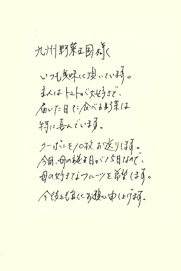 九州野菜王国様へ
いつも美味しく頂いています。
主人はトマトが大好きで、
届いた日に食べる野菜は
特に喜んでいます。
クーポンを10枚お送りします。
今回、母の誕生日が15日なので、
母の好きなフルーツを希望します。
今後とも宜しくお願い申し上げます。